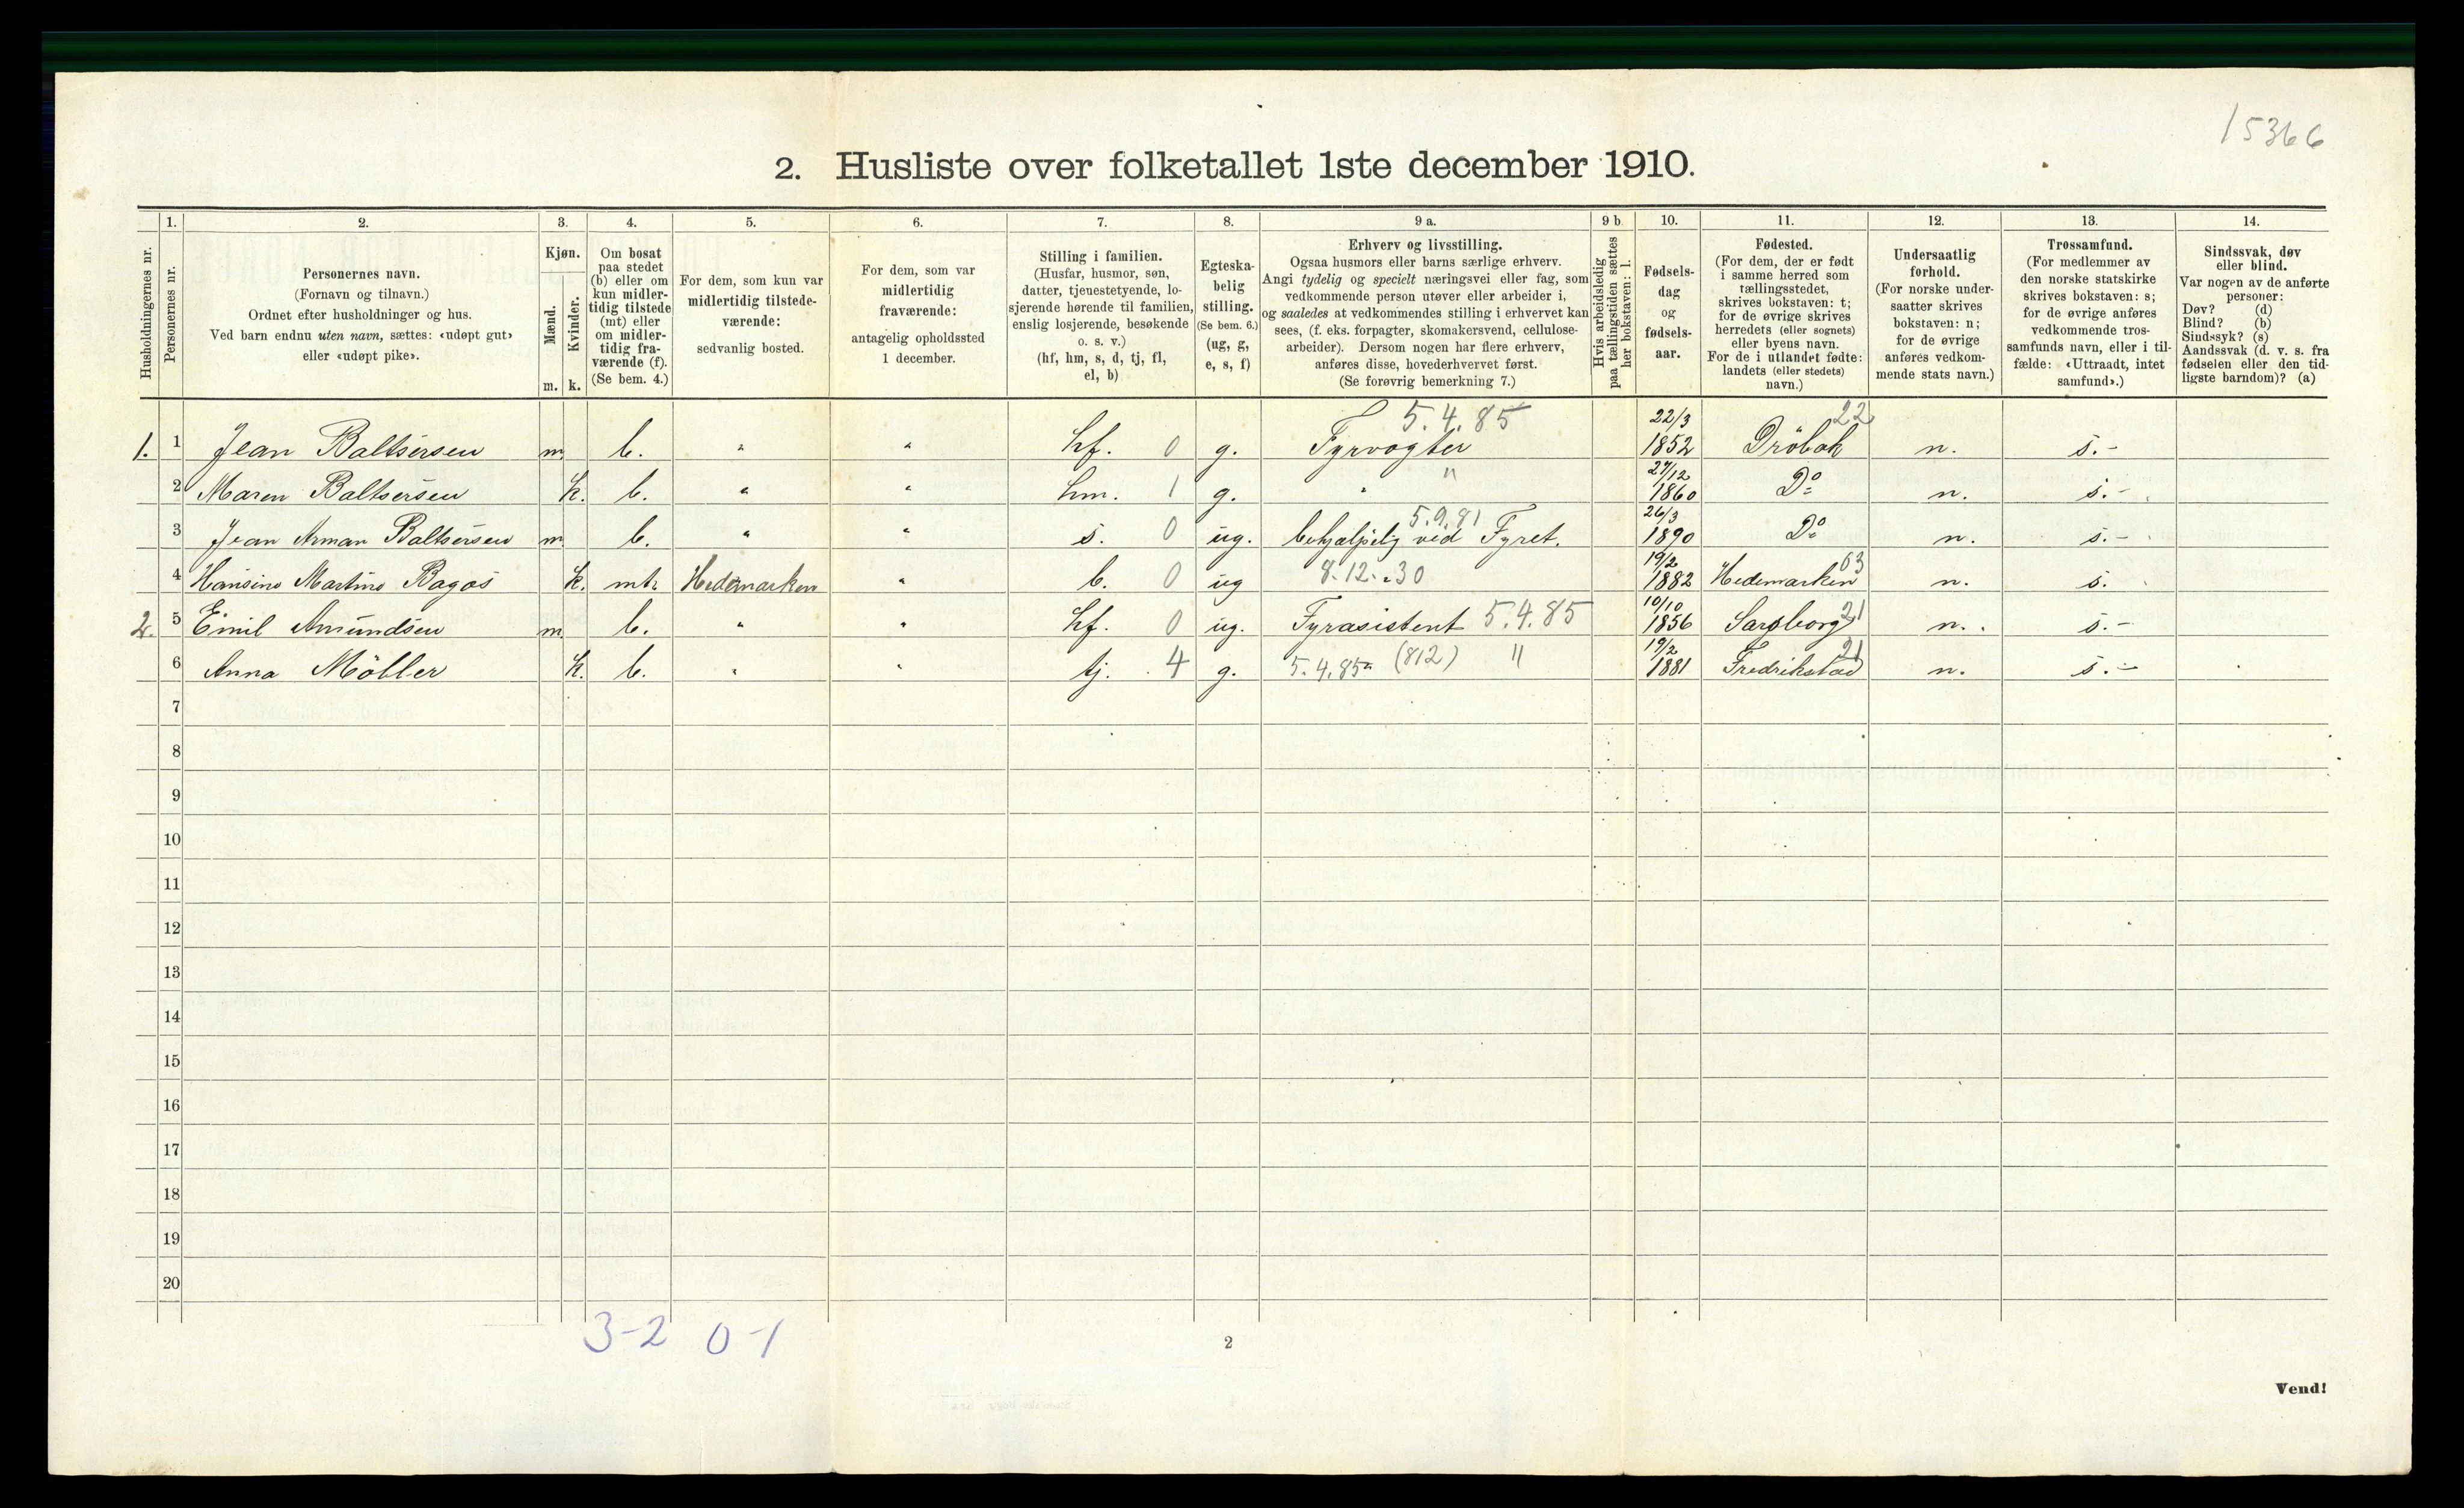 15366
2. Husliste over folketallet 1ste december 1910.
Husholdningernes nr.
1.
Personernes nr.
2.
Personernes navn.
(Fornavn og tilnavn.)
Ordnet efter husholdninger og hus.
Ved barn endnu uten navn, sættes: «udøpt gut»
eller «udøpt pike».
3.
Kjøn.
Mænd.
Kvinder.
m. k.
4.
Om bosat
paa stedet
(b) eller om
kun midler-
tidig tilstede
(mt) eller
om midler-
tidig fra-
værende (f).
(Se bem. 4.)
5.
For dem, som kun var
midlertidig tilstede-
værende:
sedvanlig bosted.
6.
For dem, som var
midlertidig
fraværende:
antagelig opholdssted
1 december.
7.
Stilling i familien.
(Husfar, husmor, søn,
datter, tjenestetyende, lo-
sjerende hørende til familien,
enslig losjerende, besøkende
o. s. v.)
(hf, hm, s, d, tj, fl,
el, b)
8.
Egteska-
belig
stilling.
(Se bem. 6.)
(ug, g,
e, s, f)
9 a.
Erhverv og livsstilling.
Ogsaa husmors eller barns særlige erhverv.
Angi tydelig og specielt næringsvei eller fag, som
vedkommende person utøver eller arbeider i,
og saaledes at vedkommendes stilling i erhvervet kan
sees, (f. eks. forpagter, skomakersvend, cellulose-
arbeider). Dersom nogen har flere erhverv,
anføres disse, hovederhvervet først.
(Se forøvrig bemerkning 7.)
9 b.
Hvis arbeidsledig
paa tællingstiden sættes
her bokstaven: l.
10.
Fødsels-
dag
og
fødsels-
aar.
11.
Fødested.
(For dem, der er født
i samme herred som
tællingsstedet,
skrives bokstaven: t;
for de øvrige skrives
herredets (eller sognets)
eller byens navn.
For de i utlandet fødte:
landets (eller stedets)
navn.)
12.
Undersaatlig
forhold.
(For norske under-
saatter skrives
bokstaven: n;
for de øvrige
anføres vedkom-
mende stats navn.)
13.
Trossamfund.
(For medlemmer av
den norske statskirke
skrives bokstaven: s;
for de øvrige anføres
vedkommende tros-
samfunds navn, eller i til-
fælde: «Uttraadt, intet
samfund».)
14.
Sindssvak, døv
eller blind.
Var nogen av de anførte
personer:
Døv? (d)
Blind? (b)
Sindssyk? (s)
Aandssvak (d. v. s. fra
fødselen eller den tid-
ligste barndom)? (a)
1. 1 Jean Baltsersen m b. " " hf. 0 g. Fyrvogter 5.4.85 22/3 1852 Dröbak 22 n. s.-
2 Maren Baltsersen k. b. " " hm. 1 g. " " 27/12 1860 Do n. s.-
3 Jean Arman Baltsersen m b. " " s. 0 ug. behjælpelig ved Fyret. 5.9.81 26/3 1890 Do n. s.-
4 Hansine Martine k. mt. Hedemarken " b. 0 ug 8.12.30 19/2 1882 Hedemarken 03 n. s.
2. 5 Emil Amundsen m b. " " hf. 0 ug. Fyrasistent 5.4.85 10/10 1856 Sarpborg 21 n. s.-
6 Anna Möller k. b. " " tj. 4 g. 5.4.85a (812) " 19/2 1881 Fredrikstad 21 n. s.-
7
8
9
10
11
12
13
14
15
16
17
18
19
20
3-2 0-1
2
Vend!